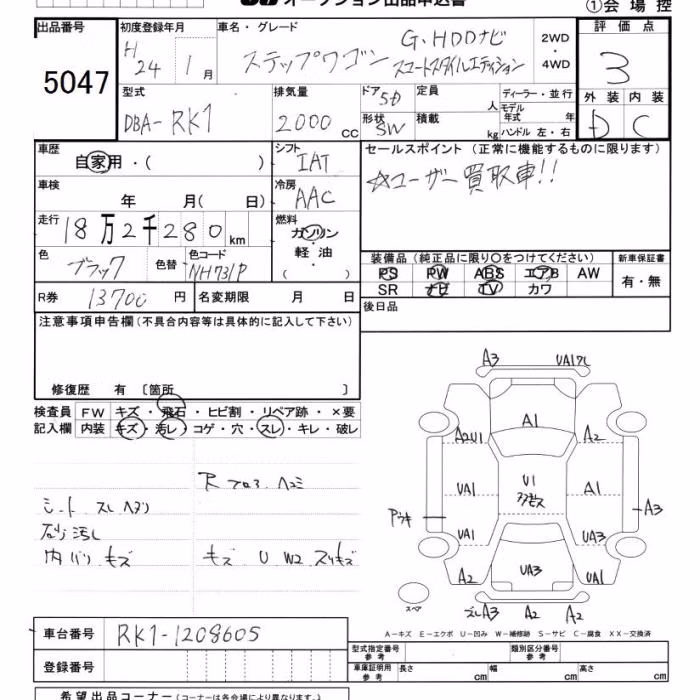 オークション出品申込書
①会場控
出品番号
5047
初度登録年月
H 24年 1月
車名・グレード
ステップワゴン
G、HDDナビ
スマートスタイルエディション
2WD
・
4WD
評価点
3
外装 内装
D C
型式
DBA- RK1
排気量
2000 cc
ドア 5D
形状 SW
定員 人
積載 kg
ディーラー・並行
モデル年式 年
ハンドル 左・右
車歴
自家用・( )
シフト
IAT
セールスポイント (正常に機能するものに限ります)
☆ユーザー買取車!!
車検
年 月( 日)
冷房
AAC
走行
18万2千280km
燃料
ガソリン
・
軽油
( )
色
ブラック
色替
色コード
NH731P
装備品 (純正品に限り〇をつけてください)
PS PW ABS エアB AW
SR ナビ TV カワ
新車保証書
有・無
R券 13700円
名変期限 月 日
後日品
注意事項申告欄(不具合内容等は具体的に記入して下さい)
修復歴 有 〔箇所 〕
検査員 FW キズ・飛石・ヒビ割・リペア跡・×要
記入欄 内装 キズ・汚レ・コゲ・穴・スレ・キレ・破レ
シート スレ ヘタリ
汚し
内バリ キズ
キズ U W2 スリキズ
A3
UA1
A1
A2U1
A2
UA1
U1
A1
A3
UA1
UA3
A2
UA3
UA1
スペア
A3
A2
A2
A-キズ E-エクボ U-凹み W-補修跡 S-サビ C-腐食 XX-交換済
車台番号 RK1-1208605
登録番号
型式指定番号 参考
類別区分番号 参考
車庫証明用 参考 長さ cm 幅 cm 高さ cm
希望出品コーナー (コーナーは各会場により異なります。)